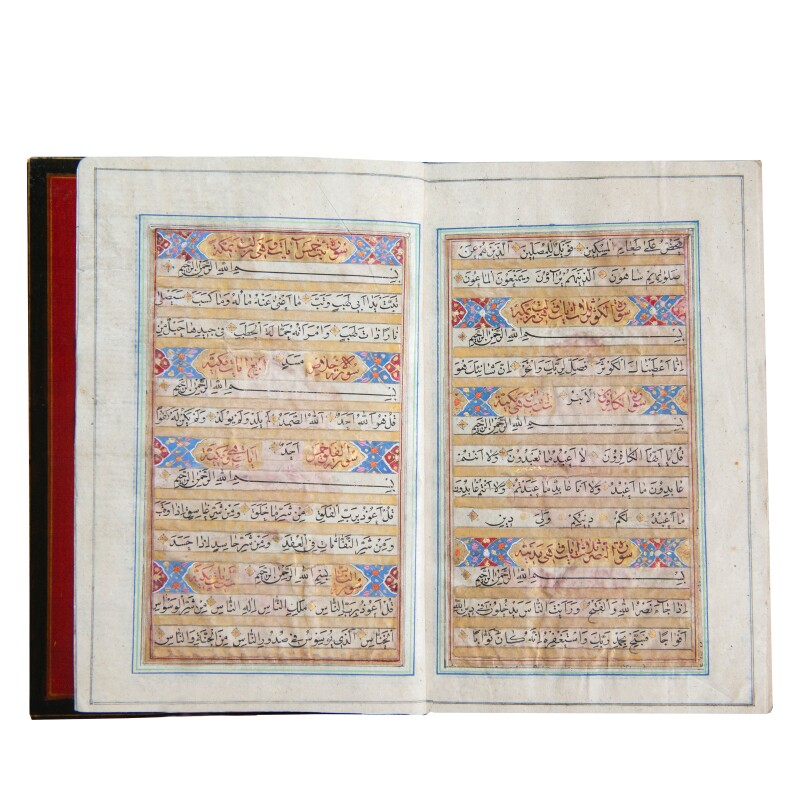 يحض على طعام المسكين فويل للمصلين الذين هم عن
صلوتهم ساهون الذينهم يرآؤن ويمنعون الماعون
سورة الكوثر ثلث ايات وهي مكية
بسم الله الرحمن الرحيم
انا اعطيناك الكوثر فصل لربك وانحر ان شانئك هو
سورة الكافرون الابتر ايات وهي مكية
بسم الله الرحمن الرحيم
قل يا ايها الكافرون لا اعبد ما تعبدون ولا انتم
عابدون ما اعبد ولا انا عابد ما عبدتم ولا انتم عابدون
ما اعبد لكم دينكم ولي دين
سورة النصر ثلث ايات وهي مدنية
بسم الله الرحمن الرحيم
اذا جاء نصر الله والفتح ورايت الناس يدخلون في دين الله
افواجا فسبح بحمد ربك واستغفره انه كان توابا
سورة تبت خمس ايات وهي مكية
بسم الله الرحمن الرحيم
تبت يدا ابي لهب وتب ما اغنى عنه ماله وما كسب سيصلى
نارا ذات لهب وامراته حمالة الحطب في جيدها حبل من
سورة الاخلاص مسد اربع ايات مكية
بسم الله الرحمن الرحيم
قل هو الله احد الله الصمد لم يلد ولم يولد ولم يكن له كفوا
سورة الفلق خمس احد ايات وهي مكية
بسم الله الرحمن الرحيم
قل اعوذ برب الفلق من شر ما خلق ومن شر غاسق اذا وقب
ومن شر النفاثات في العقد ومن شر حاسد اذا حسد
سورة الناس بسم الله الرحمن الرحيم
قل اعوذ برب الناس ملك الناس اله الناس من شر الوسواس
الخناس الذي يوسوس في صدور الناس من الجنة والناس